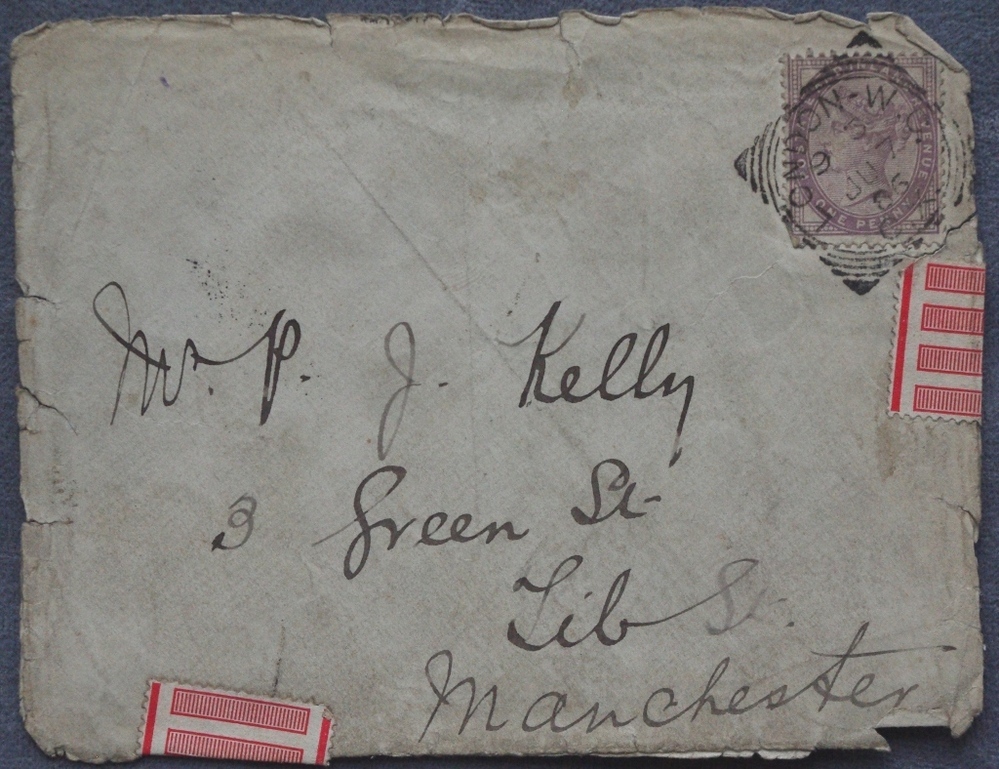 LONDON-W.C.
JU
ENUE
ONE PENNY
Mr. P. J. Kelly
3 Green St
Tib St.
Manchester